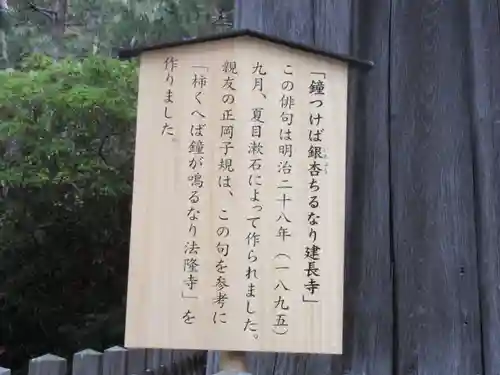 「鐘つけば銀杏ちるなり建長寺」
この俳句は明治二十八年（一八九五）
九月、夏目漱石によって作られました。
親友の正岡子規は、この句を参考に
「柿くへば鐘が鳴るなり法隆寺」を
作りました。